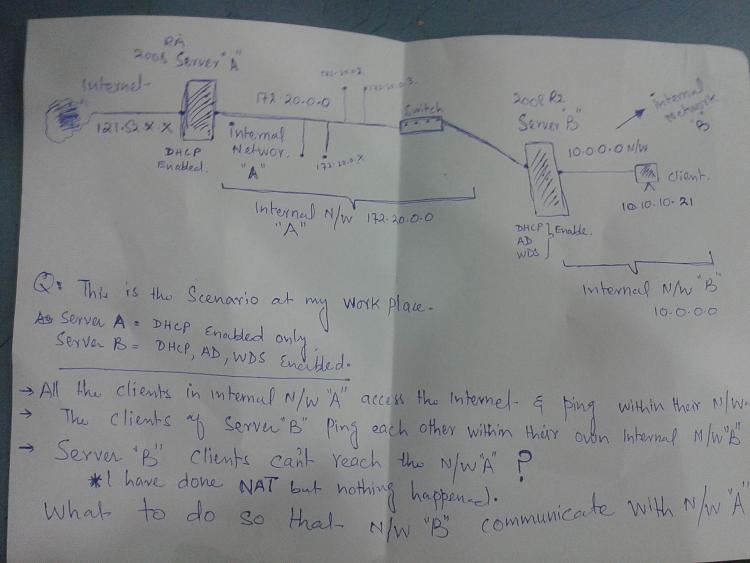 R2
2008 Server "A"
Internet
121.52.X.X
DHCP
Enabled.
172.20.0.0
Internal
Networ.
"A"
172.20.0.X
Switch
Internal N/W 172.20.0.0
"A"
2008 R2
Server "B"
Internal
Network
"B"
10.0.0.0 N/W
Client.
10.10.10.21
DHCP
AD
WDS
Enable.
Internal N/W "B"
10.0.0.0
Q: This is the Scenario at my work place.
Server A = DHCP Enabled only.
Server B = DHCP, AD, WDS Enabled.
→ All the clients in internal N/W "A" access the Internet & ping within their N/W.
→ The clients of Server "B" Ping each other within their own Internal N/W "B"
→ Server "B" clients can't reach the N/W "A" ?
* I have done NAT but nothing happened.
What to do so that N/W "B" communicate with N/W "A"